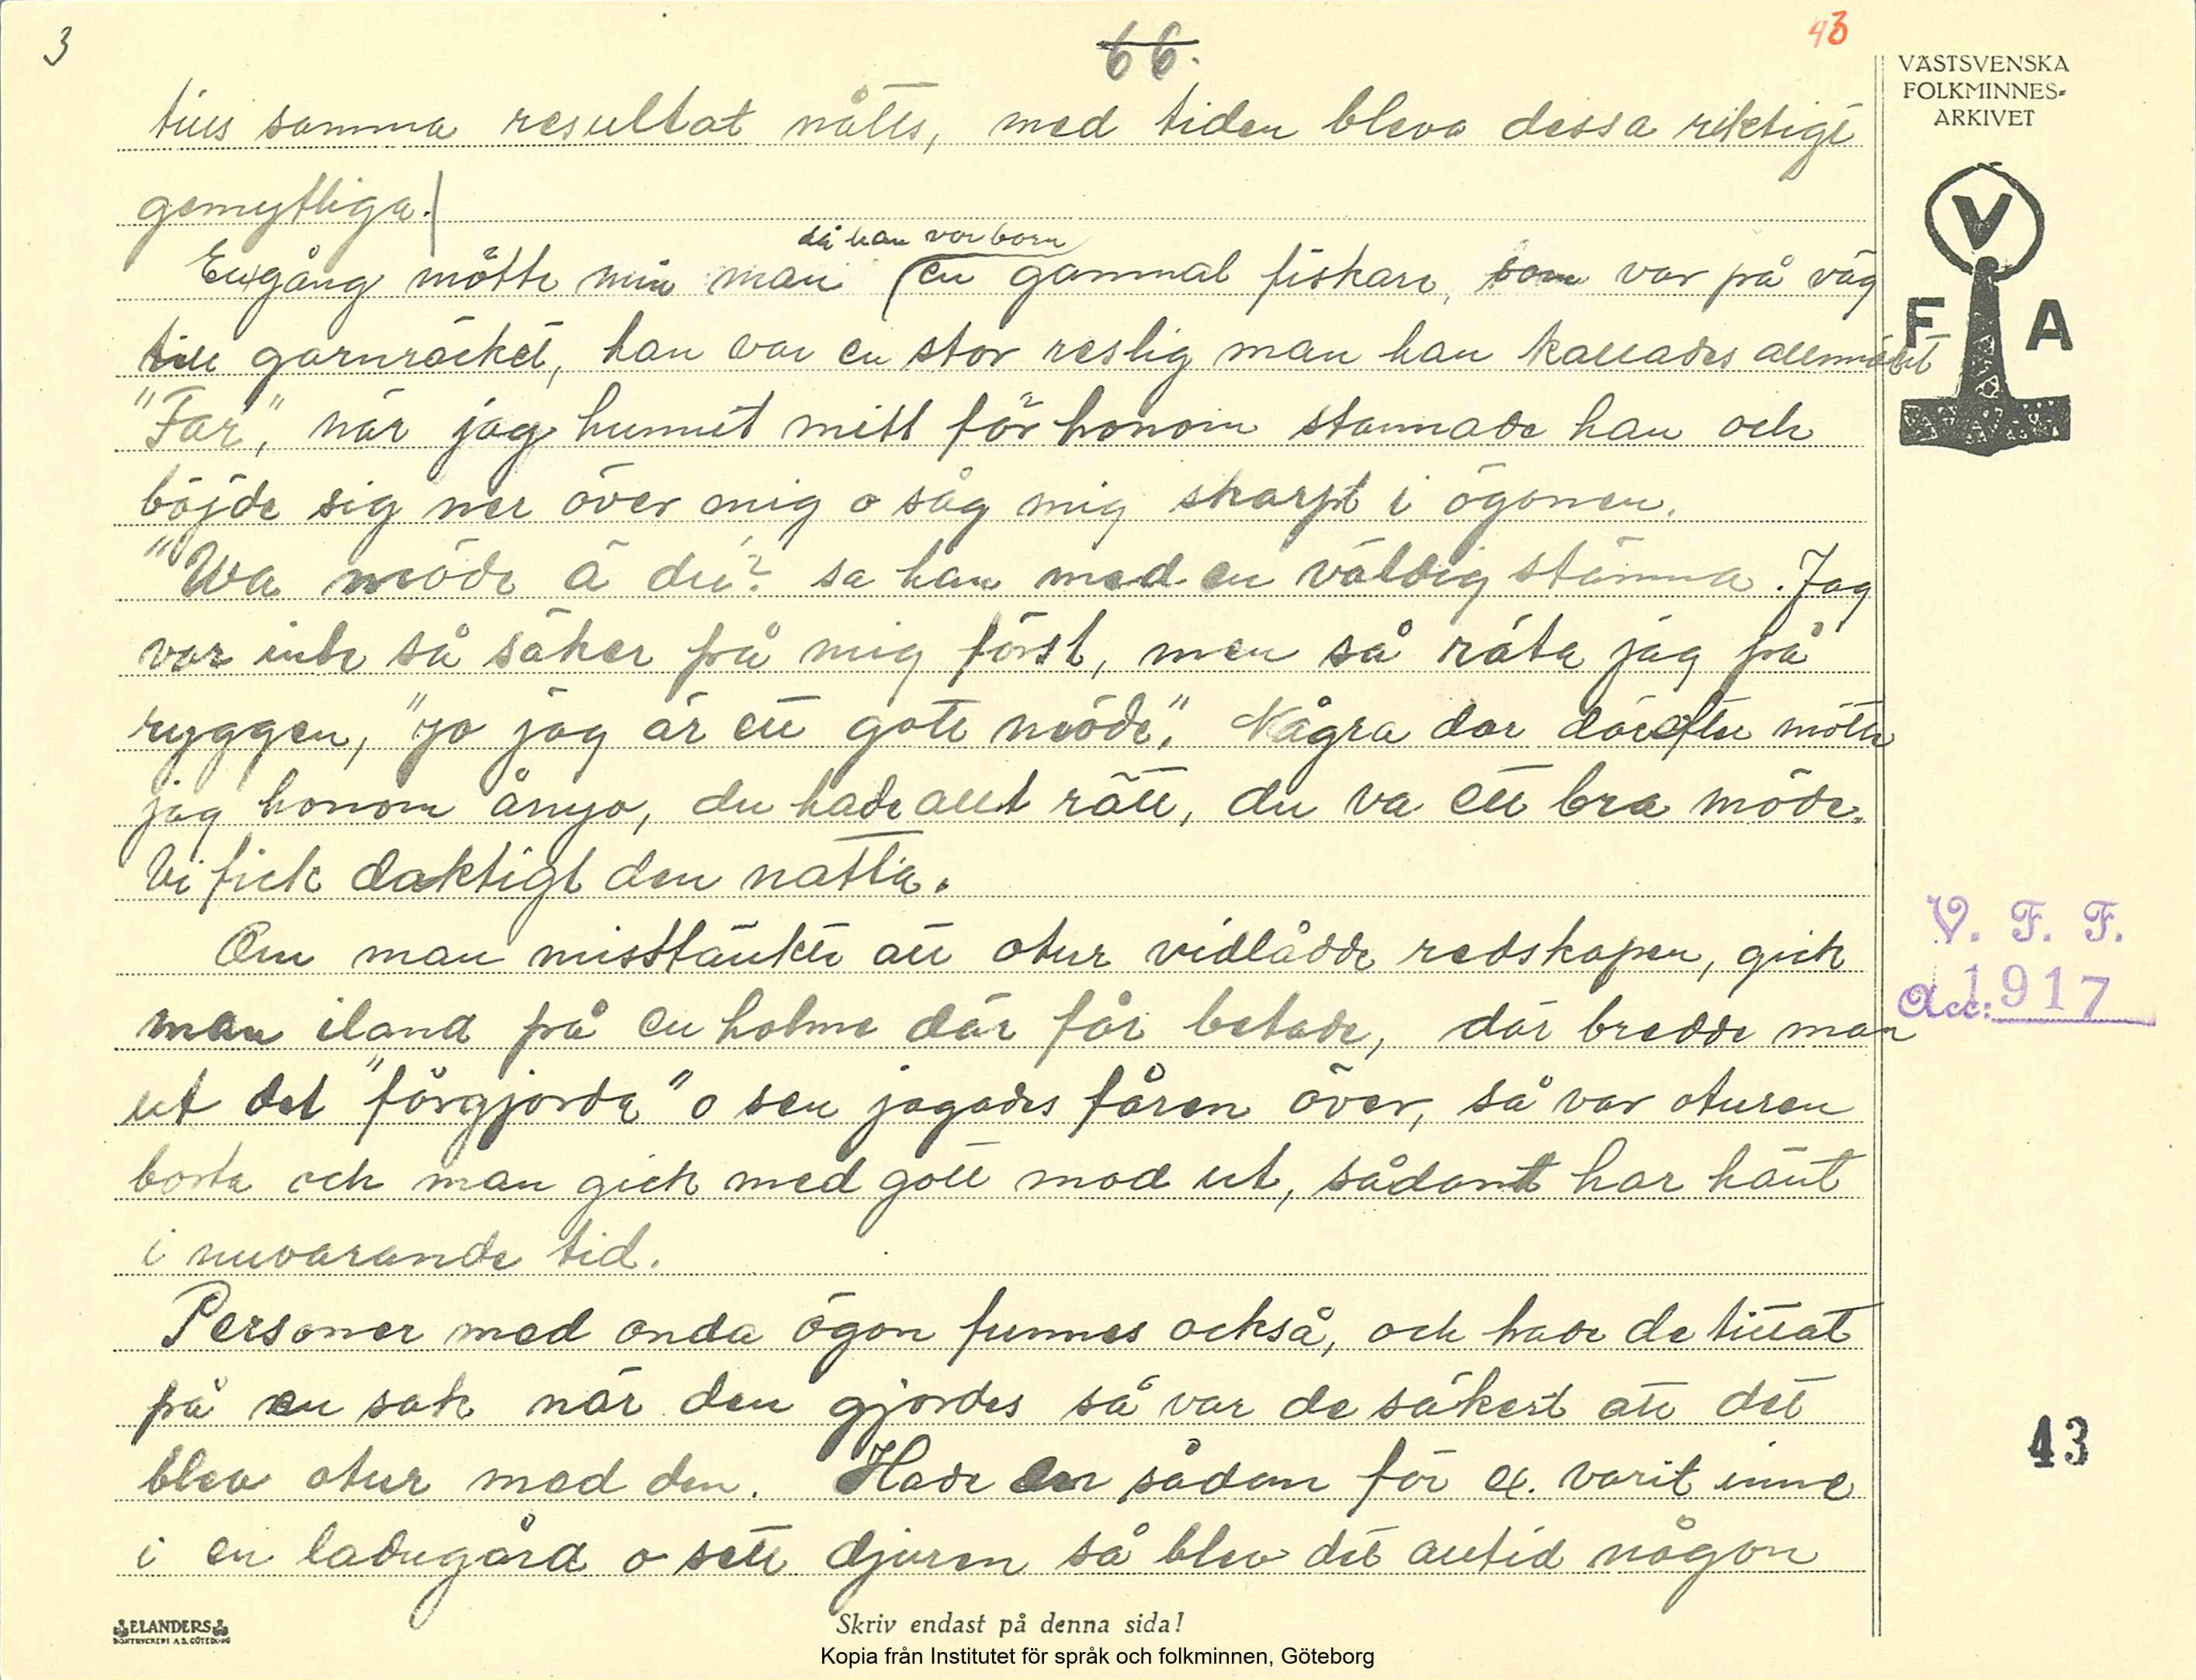 3
66.
43
VÄSTSVENSKA
FOLKMINNES-
ARKIVET
V
F A
tills samma resultat nåtts, med tiden bleva dessa riktigt
gemytliga.
då han var barn
En gång mötte min man en gammal fiskare, som var på väg
till garnräcket, han var en stor reslig man han kallades allmänt
"Far", när jag hunnit mitt för honom stannade han och
böjde sig ner över mig o såg mig skarpt i ögonen.
"Wa möde ä du"? sa han med en väldig stämma. Jag
var inte så säker på mig först, men så räta jag på
ryggen, "jo jag är ett gott möde". Några dar därefter mötte
jag honom ånyo, du hade allt rätt, du va ett bra möde.
Vi fick daktigt den natta.
Om man misstänkte att otur vidlådde redskapen, gick
man iland på en holme där får betade, där bredde man
ut det "förgjorda" o sen jagades fåren över, så var oturen
borta och man gick med gott mod ut, sådant har hänt
i nuvarande tid.
Personer med onda ögon funnes också, och hade de tittat
på en sak när den gjordes så var de säkert att det
blev otur med den. Hade en sådan för ex. varit inne
i en ladugård o sett djuren så blev det alltid någon
V. F. F.
Acc: 1917
43
ELANDERS
BOKTRYCKERI A.B. GÖTEBORG
Skriv endast på denna sida!
Kopia från Institutet för språk och folkminnen, Göteborg